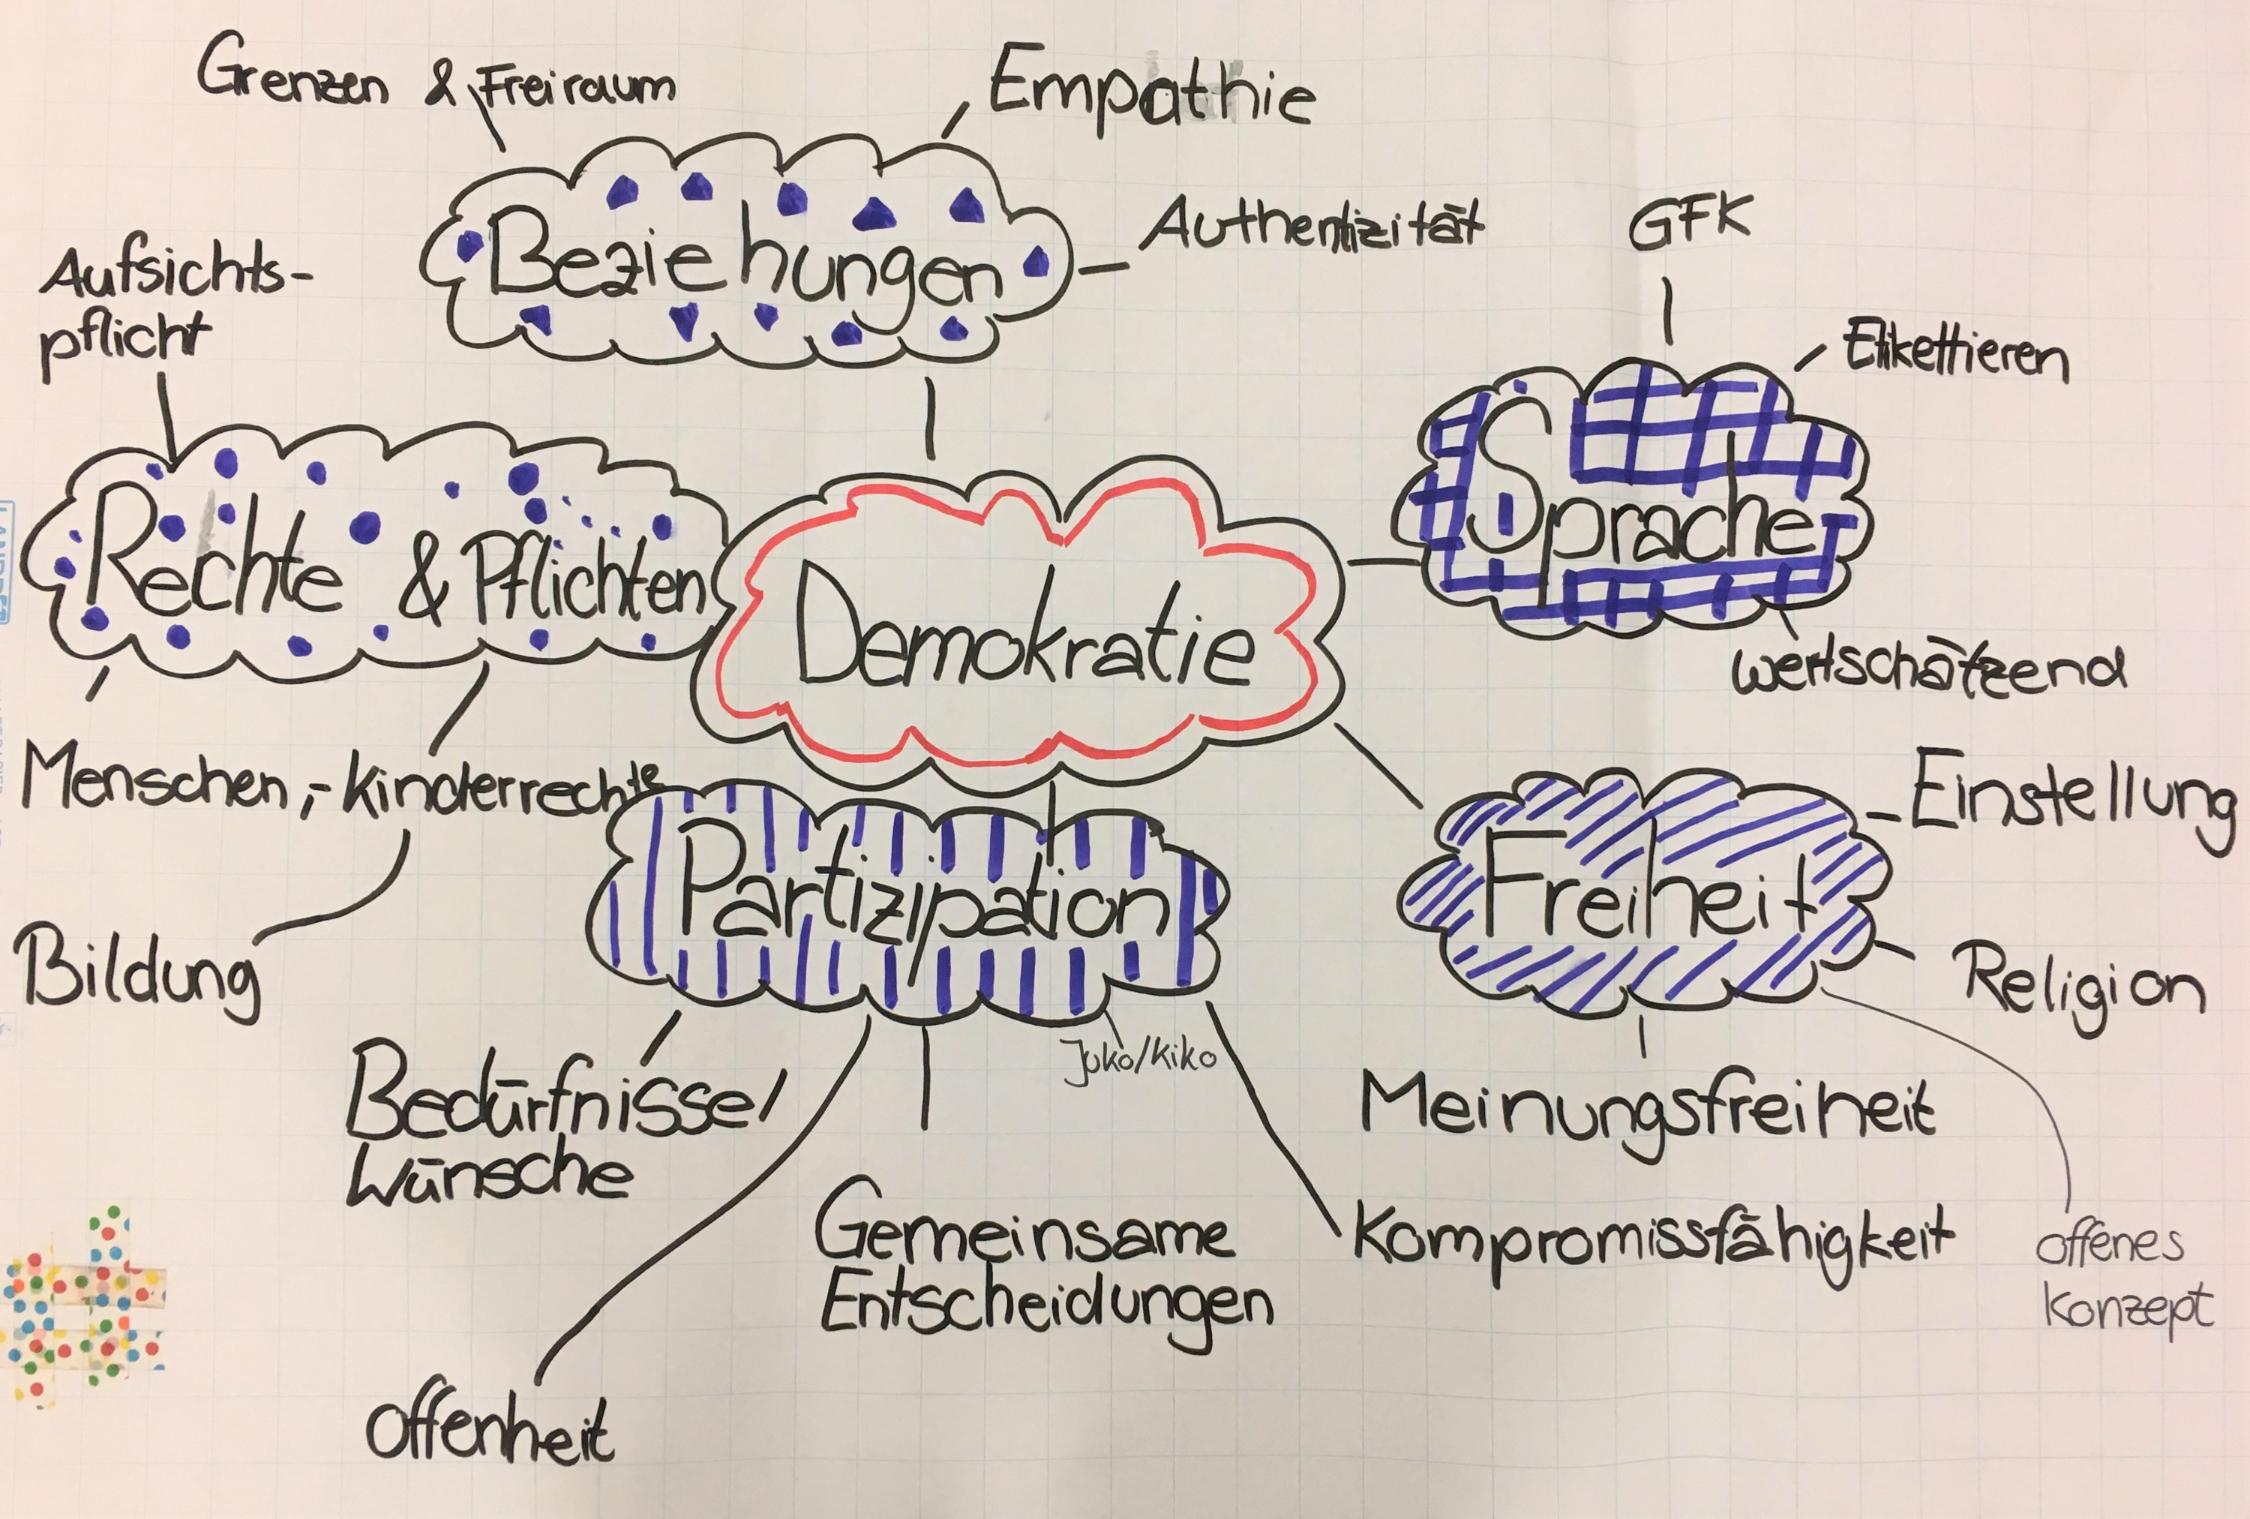 Grenzen & Freiraum
Empathie
Authentizität
Beziehungen
GFK
Etikettieren
Sprache
wertschätzend
Aufsichts-
pflicht
Rechte & Pflichten
Demokratie
Menschen,-Kinderrechte
Bildung
Partizipation
Freiheit
Einstellung
Religion
Meinungsfreiheit
offenes
Konzept
Juko/Kiko
Bedürfnisse/
Wünsche
Gemeinsame
Entscheidungen
Kompromissfähigkeit
Offenheit